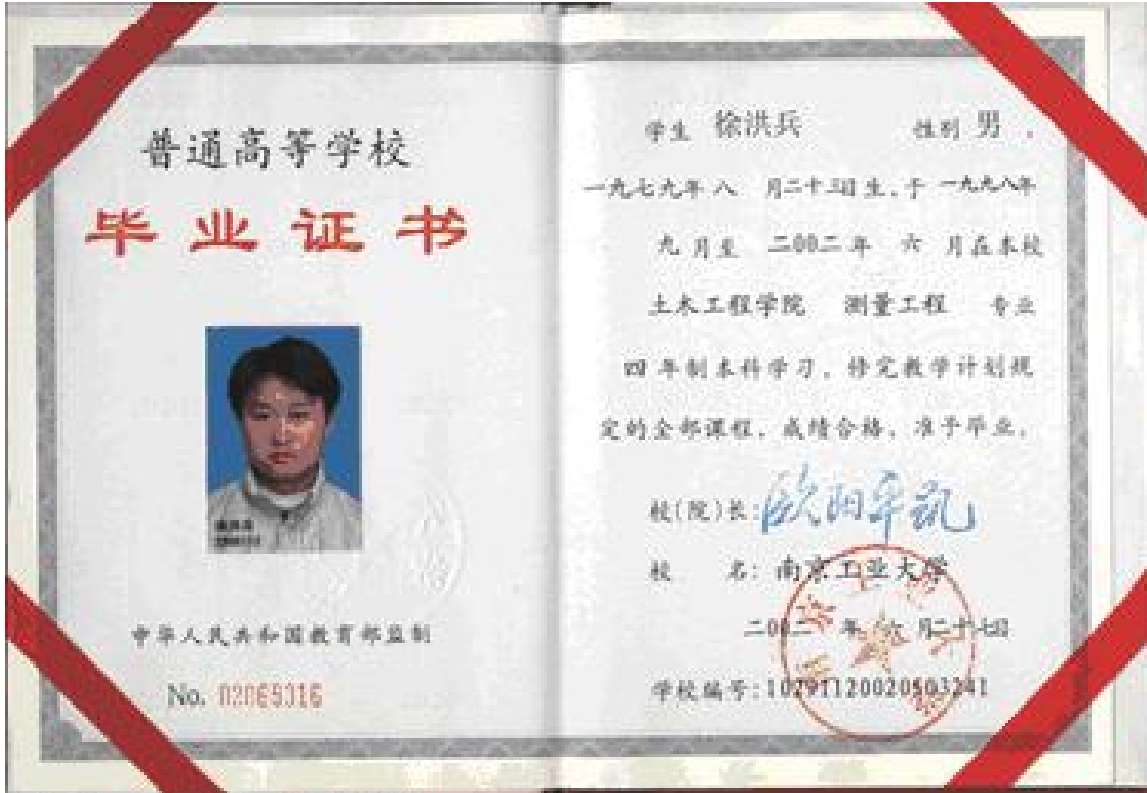 普通高等学校
毕业证书
中华人民共和国教育部监制
No. 02065316
学生 徐洪兵 性别 男 .
一九七九年八 月二十三日生,于 一九九八年
九月至 二00二年 六 月在本校
土木工程学院 测量工程 专业
四 年制本科学习,修完教学计划规
定的全部课程,成绩合格,准予毕业。
校(院)长:欧阳平凯
校 名:南京工业大学
二00二 年 六 月二十七日
学校编号:10291120020503241